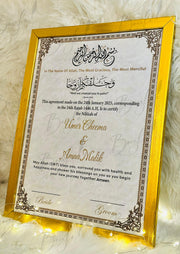 بسم الله الرحمن الرحيم
In The Name Of Allah, The Most Gracious, The Most Merciful
وخلقنكم ازوجا
"And we created you in pairs"
This agreement made on the 24th January 2025, corresponding
to the 24th Rajab 1446 A.H. is to certify
the Nikkah of
Umer Cheema
&
Amna Malik
May Allah (SWT) always surround you with health and
happiness, and shower his blessings on you as you begin
your new journey together Ameen
Bride
Groom